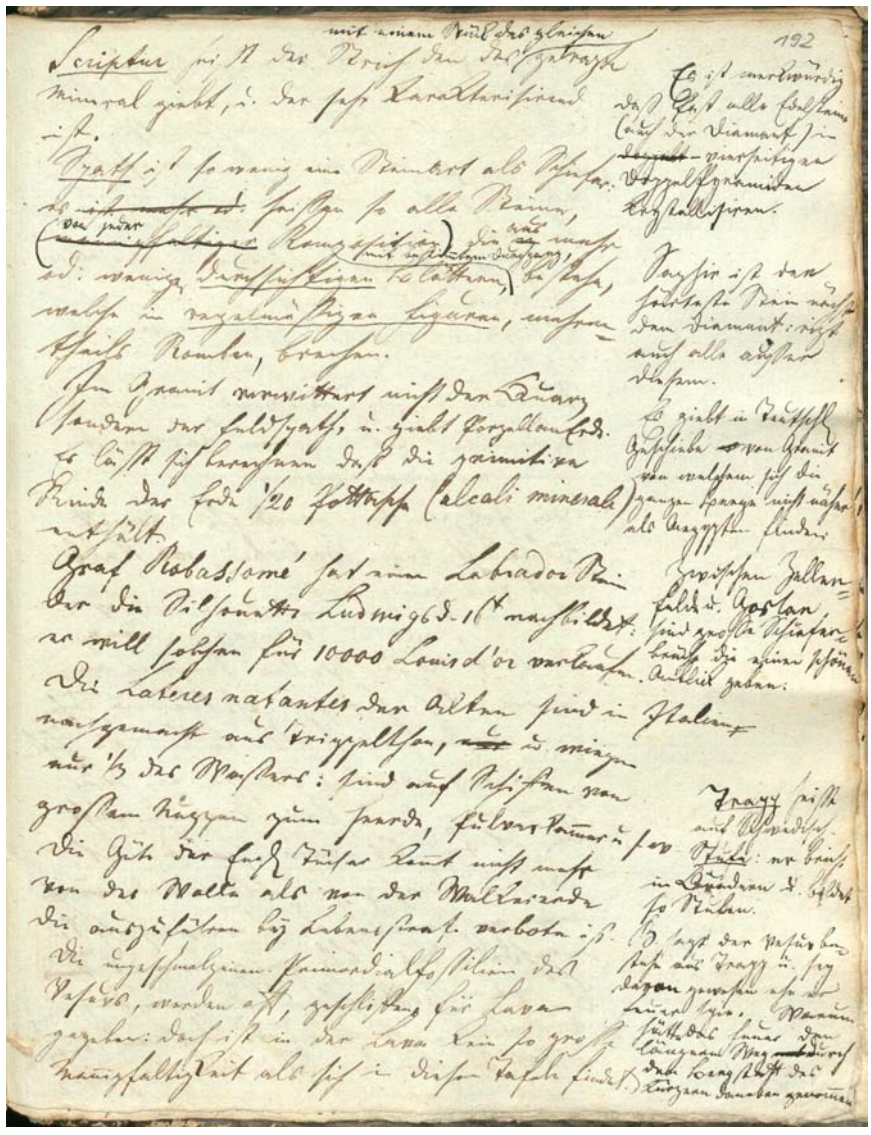 192
mit einem Stück des gleichen
Scriptur heist der Strich den das geritzte
Mineral giebt, u. der sehr karakterisirend
ist.
Spath ist so wenig eine Steinart als Schiefer:
es ist mehr od. heissen so alle Steine,
von jeder
(mannigfaltiger Komposition) die aus mehr
mit bestimtem Durchgang,
od: weniger durchsichtigen Blättern, bestehn,
welche in regelmässigen Figuren, mehren=
theils Romben, brechen.
Im Granit verwittert nicht der Quarz
sondern der Feldspath, u. giebt PorzellanErde.
Es lässt sich berechnen daß die primitive
Rinde der Erde 1/20 Pottasche (alcali minerale)
enthält.
Graf Robassomé hat einen Labrador Stein
der die Silhouette Ludwigs d. 16t nachbildet:
er will solchen für 10000 Louisd'or verkaufen.
Die Lateres natantes der Alten sind in Italien
nachgemacht aus Trippelthon, u. wiegen
nur 1/3 des Wassers: sind auf Schiffen von
grossem Nuzzen zum Heerde, Pulverkammer u. s. w.
Die Güte der Engl. Tücher komt nicht mehr
von der Wolle als von der Walkererde
die auszuführen bey Lebensstrafe verboten ist.
Die ungeschmolzenen Primordialfossilien des
Vesuvs, werden oft, geschliffen, für Lava
gegeben: doch ist in der Lava kein so grosse
Mannigfaltigkeit als sich in diesen Tafeln findet.
Es ist merkwürdig
daß fast alle Edelsteine
(auch der Diamant) in
doppelt vierseitigen
Doppelpyramiden
krystallisiren.
Saphir ist der
härteste Stein nächst
dem Diamant: rizt
auch alle ausser
diesem.
Es giebt in Teutschl.
Geschiebe von Granit
von welchem sich die
ganzen Berge nicht näher
als Aegypten finden.
Zwischen Zeller=
felde u. Goslar
sind grosse Schiefer=
brüche die einen schönen
Anblick geben.
Trapp heisst
auf Schwedisch
Stufe: er bricht
in Quadern u. bildet
so Stufen.
D. sagt der Vesuv be=
stehe aus Trapp u. sey
davon gewesen ehe er
Feuer spie. Warum
hätte das Feuer den
längern Weg durch
den Berg statt des
kürzern daneben genommen